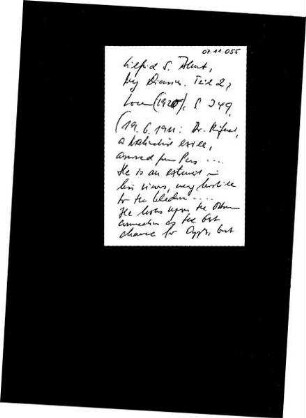 07.11.055
Wilfrid S. Blunt,
My Diaries. Teil 2,
(1920). S. 349.
(19.6.1911: Dr. Rifaat,
a Nationalist exile,
arrived from Paris ...
He is an extremist in
his views, very hostile
to the Khedive ....
He looks upon the Ottoman
connection as the best
chance for Egypt, but